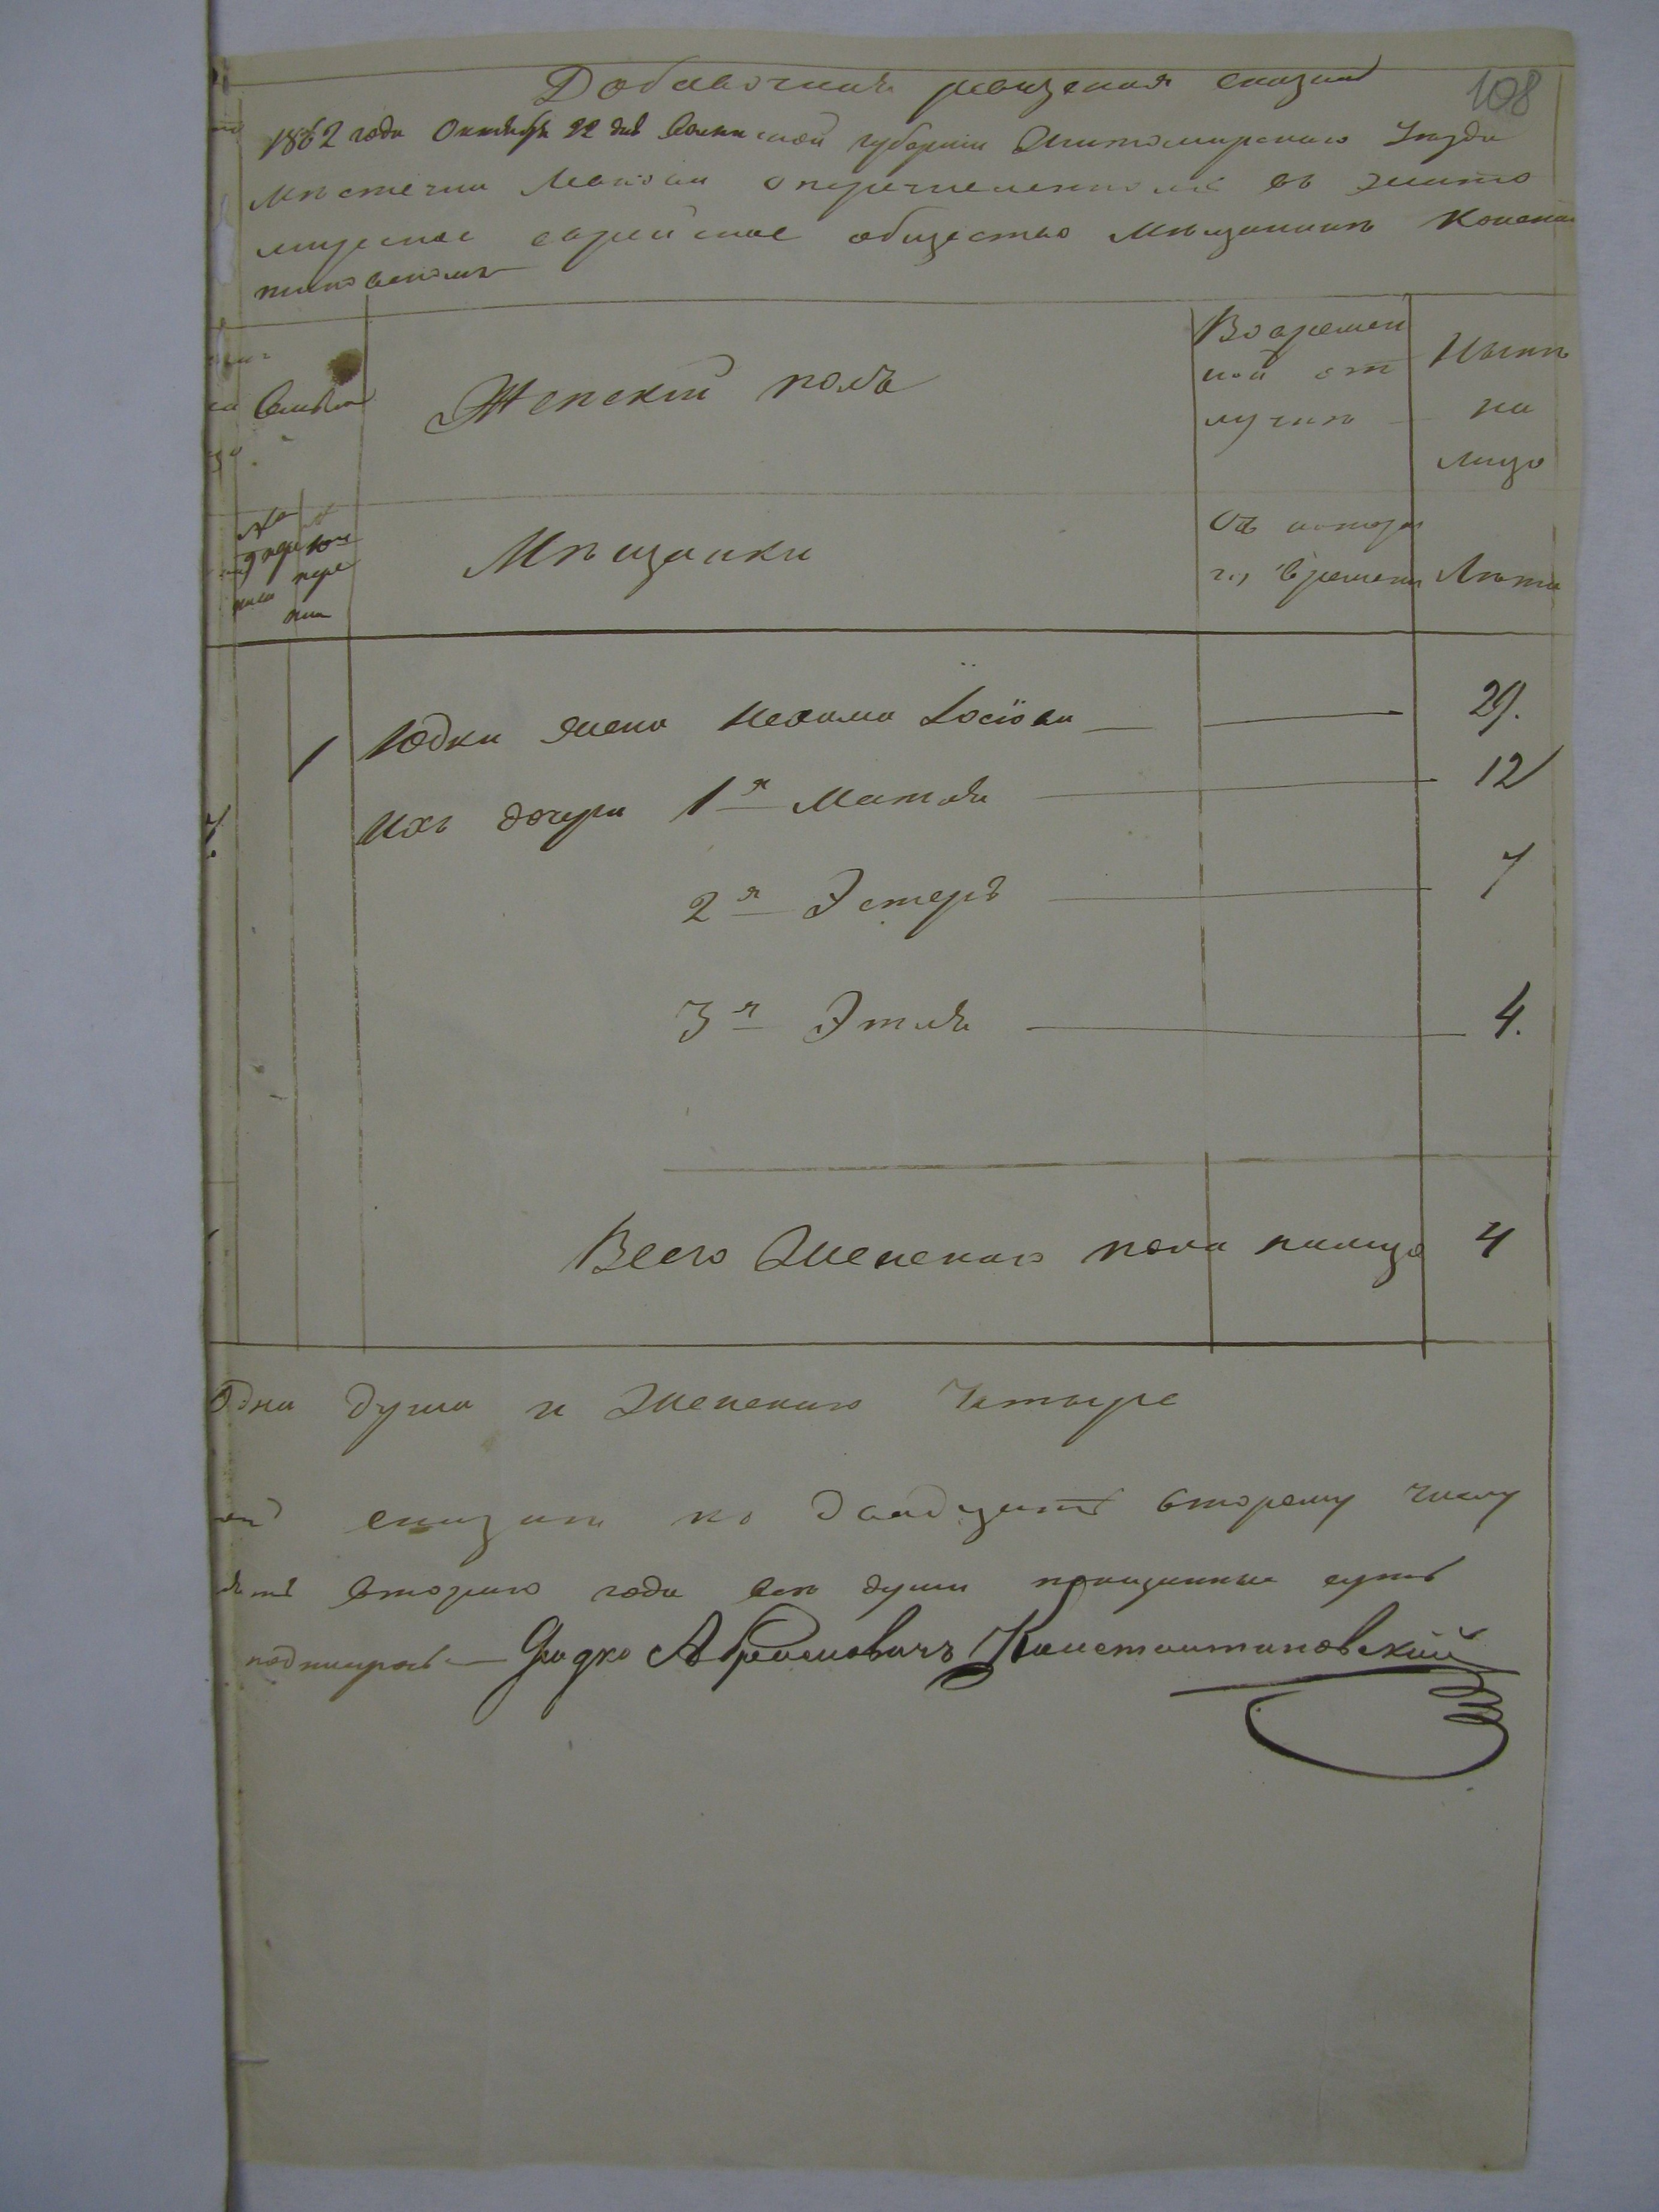 Добавочная ревизская сказка
108
1862 года Октября 22 дня Волынской губернии Житомирскаго Уезда
Местечка о перечисленномъ въ Жито
мирское еврейское общество мещанинъ Констан
тиновскомъ
Семьи
Женскій полъ
Во времен
ной от
лучкѣ
Нынѣ
на
лицо
Мѣщанки
Съ котора
го времени
Лѣта
1 Юдки жена Нехама Іосіова 29.
Ихъ дочери 1я Матля 12
2я Эстеръ 7
3я Этля 4.
Всего Женскаго пола налицо 4
Одна душа и Женскаго Четыре
сказки по двадцать второму числу
второго года всѣ души прописанные суть
Абрамовичъ Константиновскій